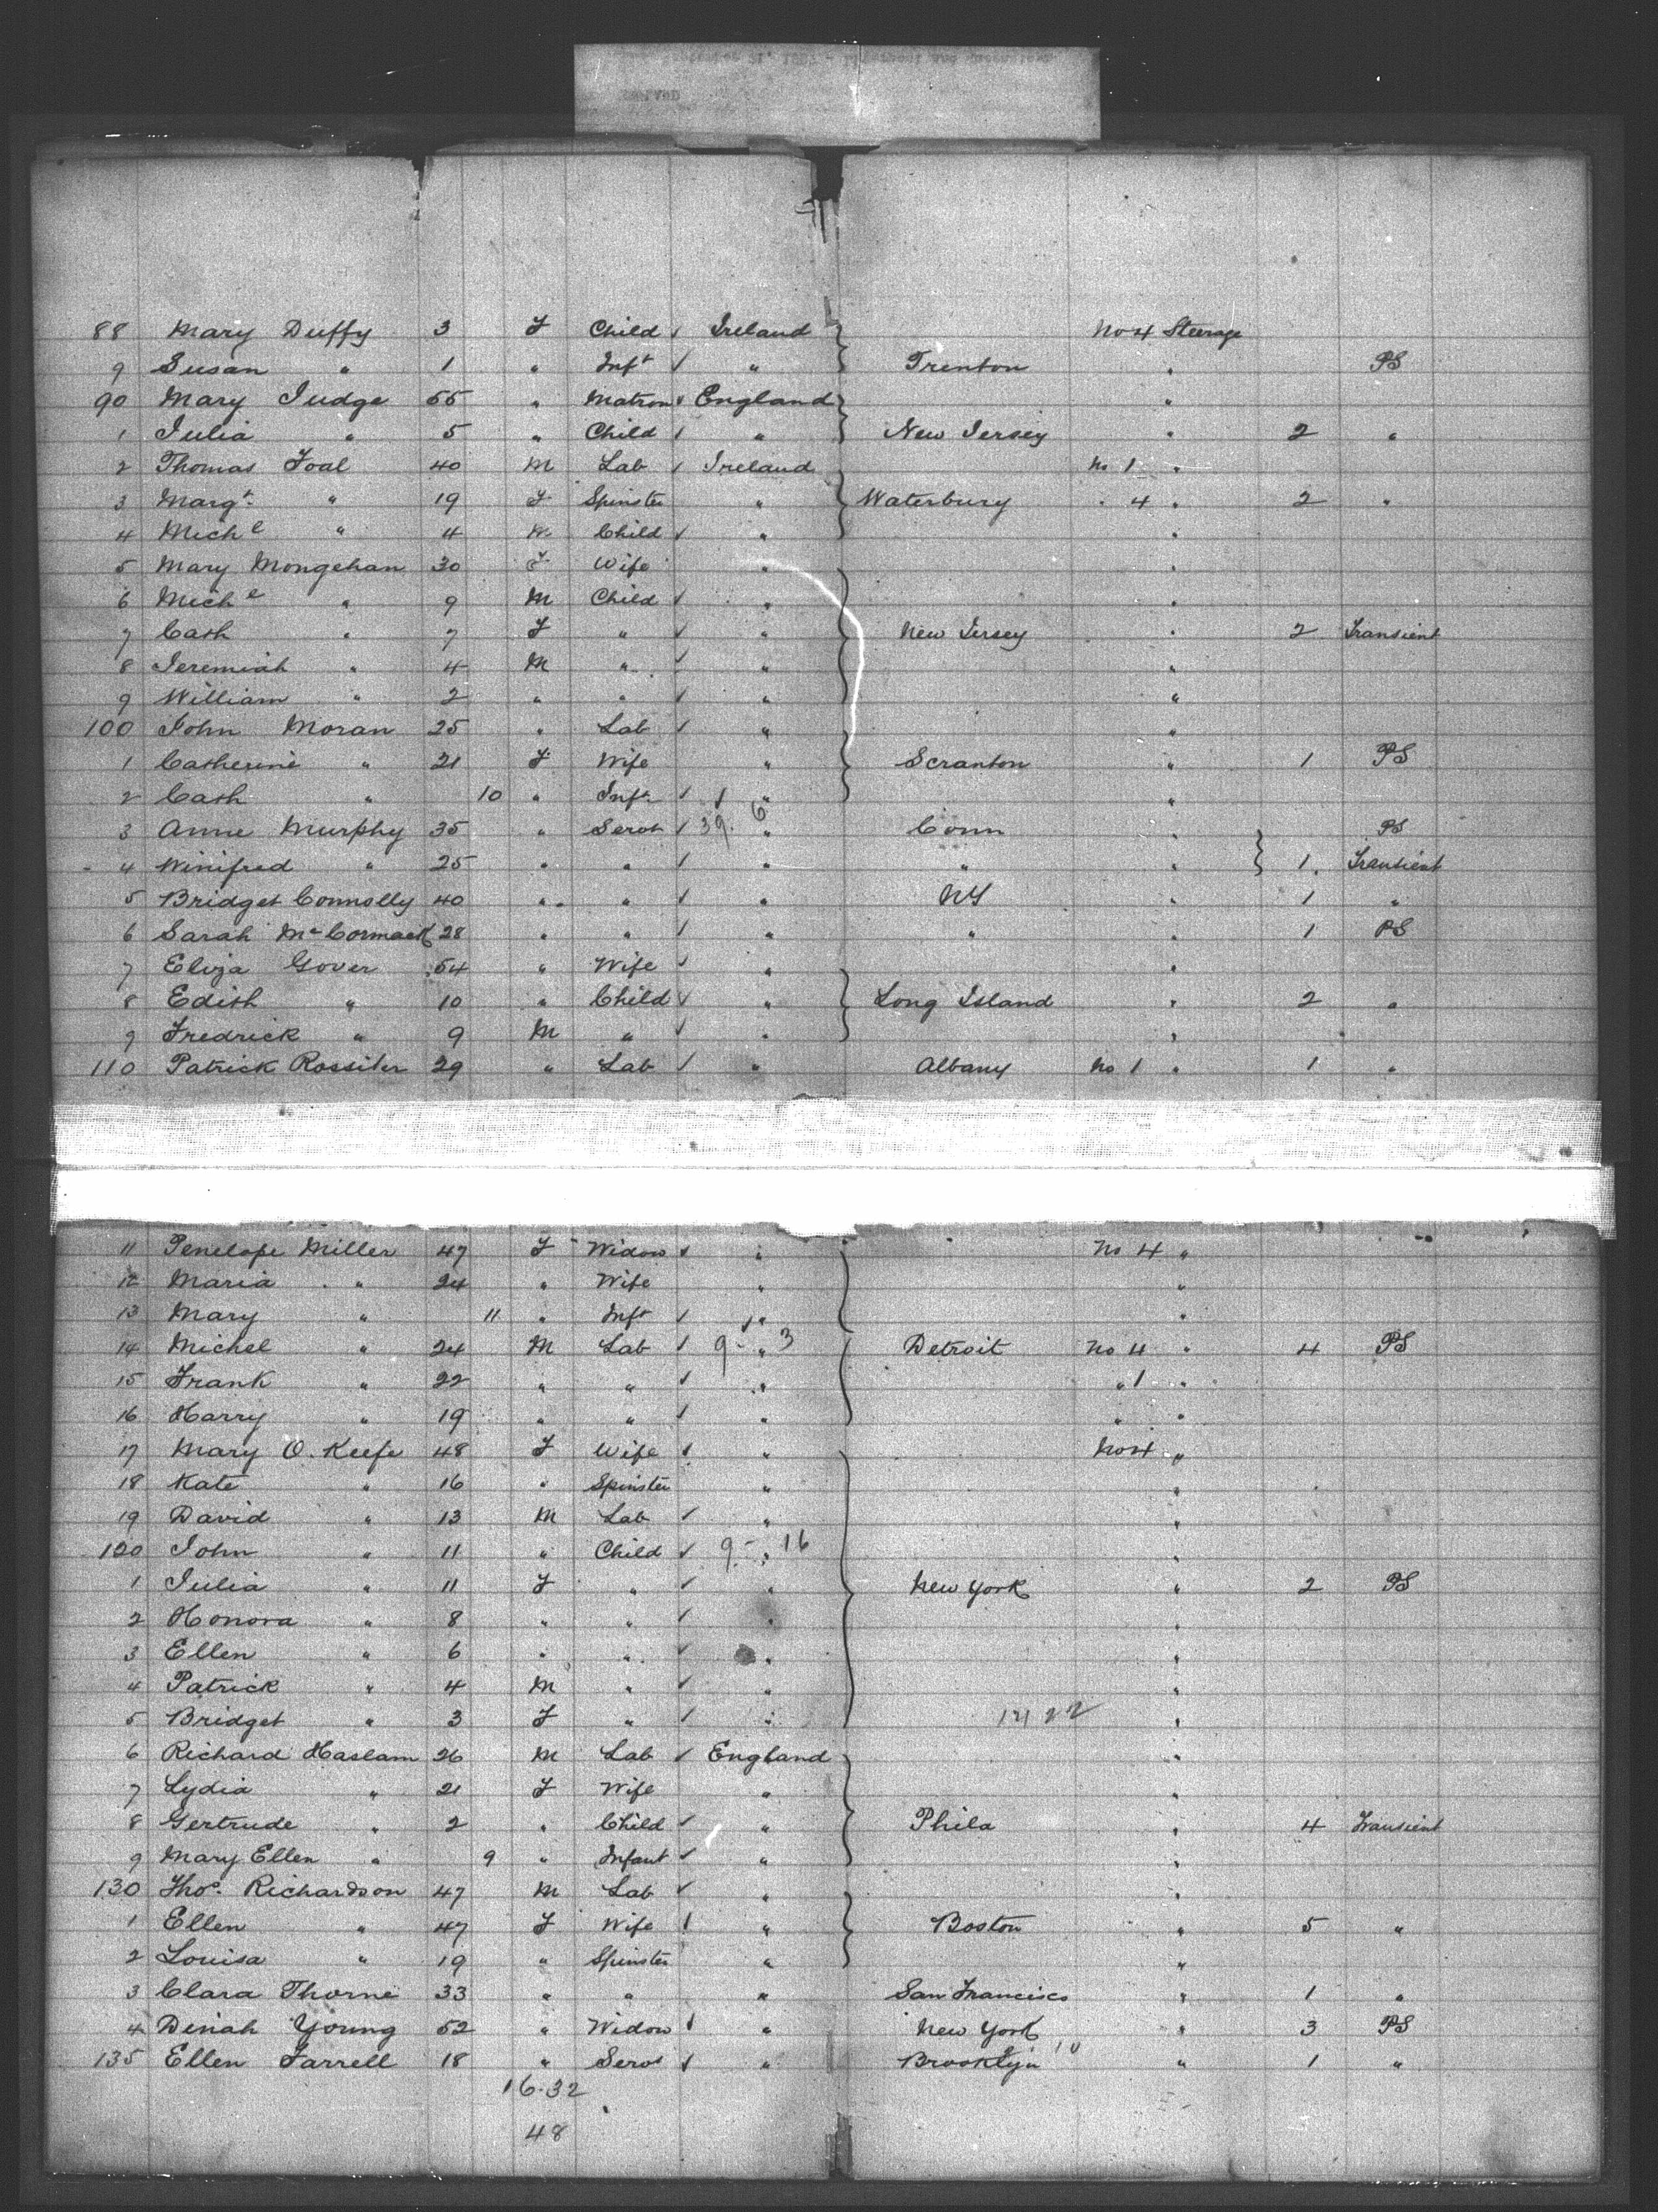 88 Mary Duffy 3 F Child ✓ Ireland No 4 Steerage
9 Susan " 1 " Inft ✓ " Trenton " PS
90 Mary Judge 55 " Matron ✓ England "
1 Julia " 5 " Child ✓ " New Jersey " 2 "
2 Thomas Foal 40 M Lab ✓ Ireland No 1 "
3 Margt. " 19 F Spinster " Waterbury " 4 " 2 "
4 Michl " 4 M Child ✓ " "
5 Mary Mongehan 30 F Wife " "
6 Michl " 9 M Child ✓ " "
7 Cath " 7 F " ✓ " New Jersey " 2 Transient
8 Jeremiah " 4 M " ✓ " "
9 William " 2 " " ✓ " "
100 John Moran 25 " Lab ✓ " "
1 Catherine " 21 F Wife " Scranton " 1 PS
2 Cath " 10 " Inft ✓ " "
3 Anne Murphy 35 " Servt ✓ 39. 6 " Conn " PS
4 Winifred " 25 " " ✓ " " " 1. Transient
5 Bridget Connolly 40 " " ✓ " NY " 1 "
6 Sarah McCormack 28 " " ✓ " " " 1 PS
7 Eliza Gover 54 " Wife ✓ " "
8 Edith " 10 " Child ✓ " Long Island " 2 "
9 Fredrick " 9 M " ✓ " "
110 Patrick Rossiter 29 " Lab ✓ " Albany No 1 " 1 "
11 Penelope Miller 47 F Widow ✓ " No 4 "
12 Maria " 24 " Wife " "
13 Mary " 11 " Inft ✓ " "
14 Michel " 24 M Lab ✓ 9 - " 3 Detroit No 4 " 4 PS
15 Frank " 22 " " ✓ " " 1 "
16 Harry " 19 " " ✓ " " "
17 Mary O. Keefe 48 F Wife ✓ " No 4 "
18 Kate " 16 " Spinster " "
19 David " 13 M Lab ✓ " "
120 John " 11 " Child ✓ 9 - " 16 "
1 Julia " 11 F " ✓ " New York " 2 PS
2 Honora " 8 " " ✓ " "
3 Ellen " 6 " " ✓ " "
4 Patrick " 4 M " ✓ " "
5 Bridget " 3 F " ✓ " "
6 Richard Haslam 26 M Lab ✓ England "
7 Lydia " 21 F Wife " "
8 Gertrude " 2 " Child ✓ " Phila " 4 Transient
9 Mary Ellen " 9 " Infant ✓ " "
130 Thos. Richardson 47 M Lab ✓ " "
1 Ellen " 47 F Wife ✓ " Boston " 5 "
2 Louisa " 19 " Spinster " "
3 Clara Thorne 33 " " " San Francisco " 1 "
4 Dinah Young 52 " Widow ✓ " New York " 3 PS
135 Ellen Farrell 18 " Servt ✓ " Brooklyn " 1 "
16.32
48